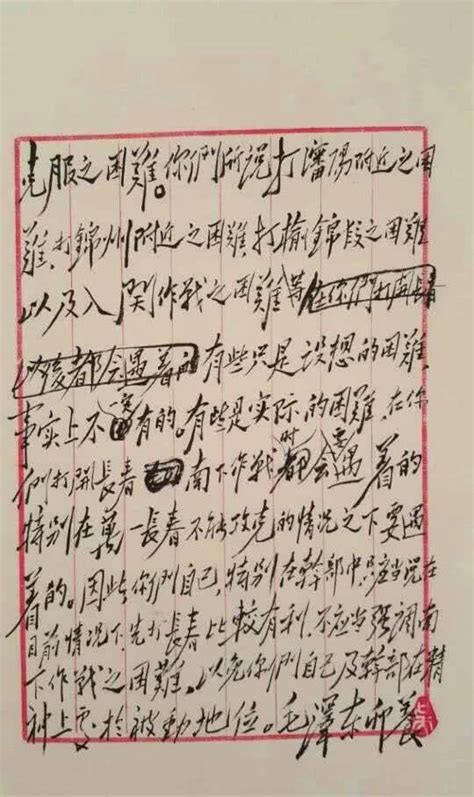 克服之困難。你们所说打瀋陽附近之困
難、打錦州附近之困難、打榆錦段之困難
以及入関作戦之困難等在你們打開長春
以後都会遇着的有些只是设想的困難,
事实上不一定有的。有些是实际的困難,在你
们打開長春南下作戦时都会要遇着的
特别在萬一長春不能攻克的情况之下要遇
着的。因此,你们自己,特别在幹部中只应当说在
目前情况下先打長春比較有利,不应当强调南
下作戦之困難,以免你们自己及幹部在精
神上处於被動地位。毛澤东卯養